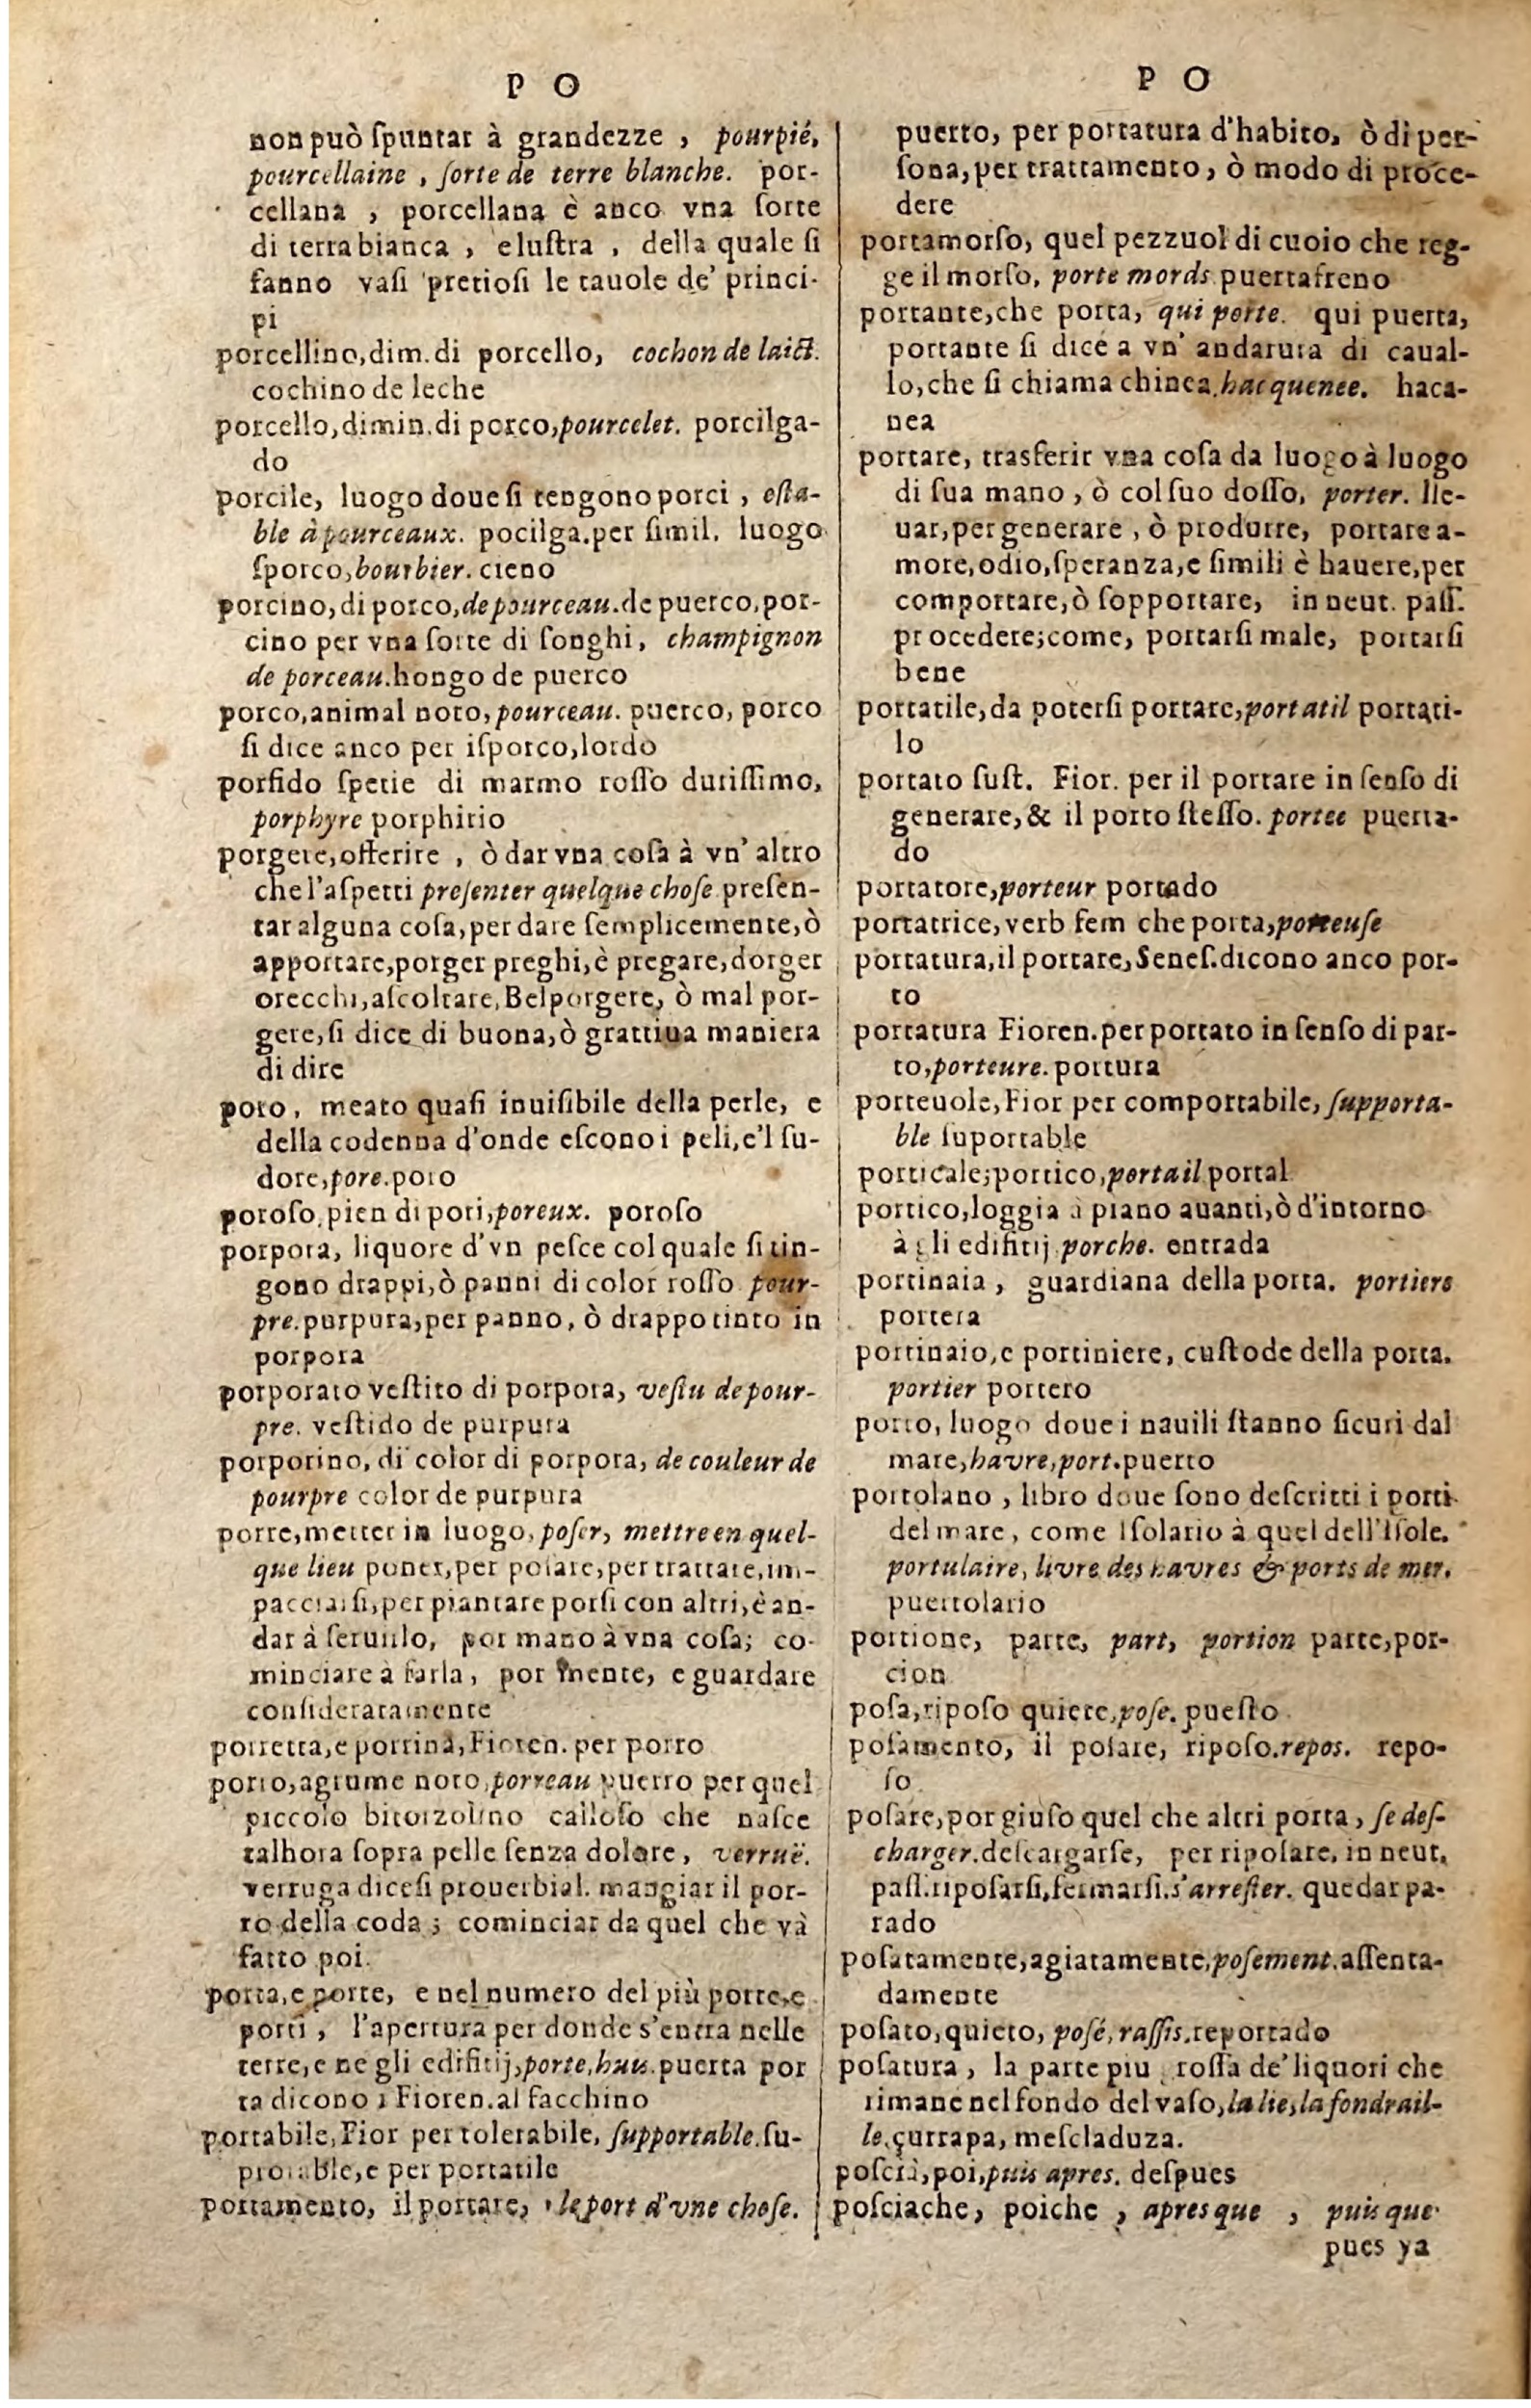 P O
non può ſpuntar à grandezze , pourpié,
pourcellaine , ſorte de terre blanche. por-
cellana , porcellana è anco vna ſorte
di terra bianca , e luſtra , della quale ſi
fanno vaſi pretioſi le tauole de' princi-
pi
porcellino,dim.di porcello, cochon de laict.
cochino de leche
porcello,dimin.di porco,pourcelet. porcilga-
do
porcile, luogo doue ſi tengono porci , eſta-
ble à pourceaux. pocilga.per ſimil. luogo
ſporco,bourbier. cieno
porcino,di porco,de pourceau.de puerco,por-
cino per vna ſorte di fonghi, champignon
de porceau.hongo de puerco
porco,animal noto,pourceau. puerco, porco
ſi dice anco per iſporco,lordo
porfido ſpetie di marmo roſſo duriſſimo,
porphyre porphirio
porgere,offerire , ò dar vna coſa à vn' altro
che l'aſpetti preſenter quelque choſe preſen-
tar alguna coſa,per dare ſemplicemente,ò
apportare,porger preghi,è pregare,dorger
orecchi,aſcoltare,Bel porgere, ò mal por-
gere,ſi dice di buona,ò grattiua maniera
di dire
poro, meato quaſi inuiſibile della perle, e
della codenna d'onde eſcono i peli,e'l ſu-
dore,pore.poro
poroſo,pien di pori,poreux. poroſo
porpora, liquore d'vn peſce col quale ſi tin-
gono drappi,ò panni di color roſſo pour-
pre.purpura,per panno, ò drappo tinto in
porpora
porporato veſtito di porpora, veſtu de pour-
pre. veſtido de purpura
porporino, di color di porpora, de couleur de
pourpre color de purpura
porre,metter in luogo,poſer, mettre en quel-
que lieu poner,per poſare,per trattare,im-
pacciarſi,per piantare porſi con altri,è an-
dar à ſeruirlo, por mano à vna coſa; co-
minciare à farla, por mente, e guardare
conſideratamente
porretta,e porrina,Fioren. per porro
porro,agrume noto,porreau puerro per quel
piccolo bitorzolino calloſo che naſce
talhora ſopra pelle ſenza dolore, verruë.
verruga diceſi prouerbial. mangiar il por-
ro della coda ; cominciar da quel che và
fatto poi.
porta,e porte, e nel numero del più porte,e
porti , l'apertura per donde s'entra nelle
terre,e ne gli edifitij,porte,huis.puerta por
ta dicono i Fioren.al facchino
portabile,Fior per tolerabile, ſupportable.ſu-
portable,e per portatile
portamento, il portare, le port d'vne choſe.
P O
puerto, per portatura d'habito, ò di per-
ſona,per trattamento, ò modo di proce-
dere
portamorſo, quel pezzuol di cuoio che reg-
ge il morſo, porte mords puertafreno
portante,che porta, qui porte. qui puerta,
portante ſi dice a vn' andatura di caual-
lo,che ſi chiama chinea.hacquenee. haca-
nea
portare, trasferir vna coſa da luogo à luogo
di ſua mano , ò col ſuo doſſo, porter. lle-
uar,per generare , ò produrre, portare a-
more,odio,ſperanza,e ſimili è hauere,per
comportare,ò ſopportare, in neut. paſſ.
procedere;come, portarſi male, portarſi
bene
portatile,da poterſi portare,portatil portati-
lo
portato ſuſt. Fior. per il portare in ſenſo di
generare,& il porto ſteſſo. portee puerta-
do
portatore,porteur portado
portatrice,verb fem che porta,porteuſe
portatura,il portare,Seneſ.dicono anco por-
to
portatura Fioren.per portato in ſenſo di par-
to,porteure. portura
porteuole,Fior per comportabile, ſupporta-
ble ſuportable
porticale;portico,portail portal
portico,loggia à piano auanti,ò d'intorno
à gli edifitij porche. entrada
portinaia , guardiana della porta. portiere
portera
portinaio,e portiniere, cuſtode della porta.
portier portero
porto, luogo doue i nauili ſtanno ſicuri dal
mare,havre,port.puerto
portolano , libro doue ſono deſcritti i porti
del mare, come Iſolario à quel dell'Iſole.
portulaire, livre des havres & ports de mer.
puertolario
portione, parte, part, portion parte,por-
cion
poſa,ripoſo quiete,poſe. pueſto
poſamento, il poſare, ripoſo.repos. repo-
ſo
poſare,por giuſo quel che altri porta , ſe deſ-
charger.deſcargarſe, per ripoſare, in neut.
paſſ.ripoſarſi,fermarſi.s'arreſter. quedar pa-
rado
poſatamente,agiatamente,poſement.aſſenta-
damente
poſato,quieto, poſé, raſſis.reportado
poſatura , la parte piu groſſa de' liquori che
rimane nel fondo del vaſo,la lie,la fondrail-
le.çurrapa, meſcladuza.
poſcià,poi,puis apres. deſpues
poſciache, poiche , apres que , puis que
pues ya